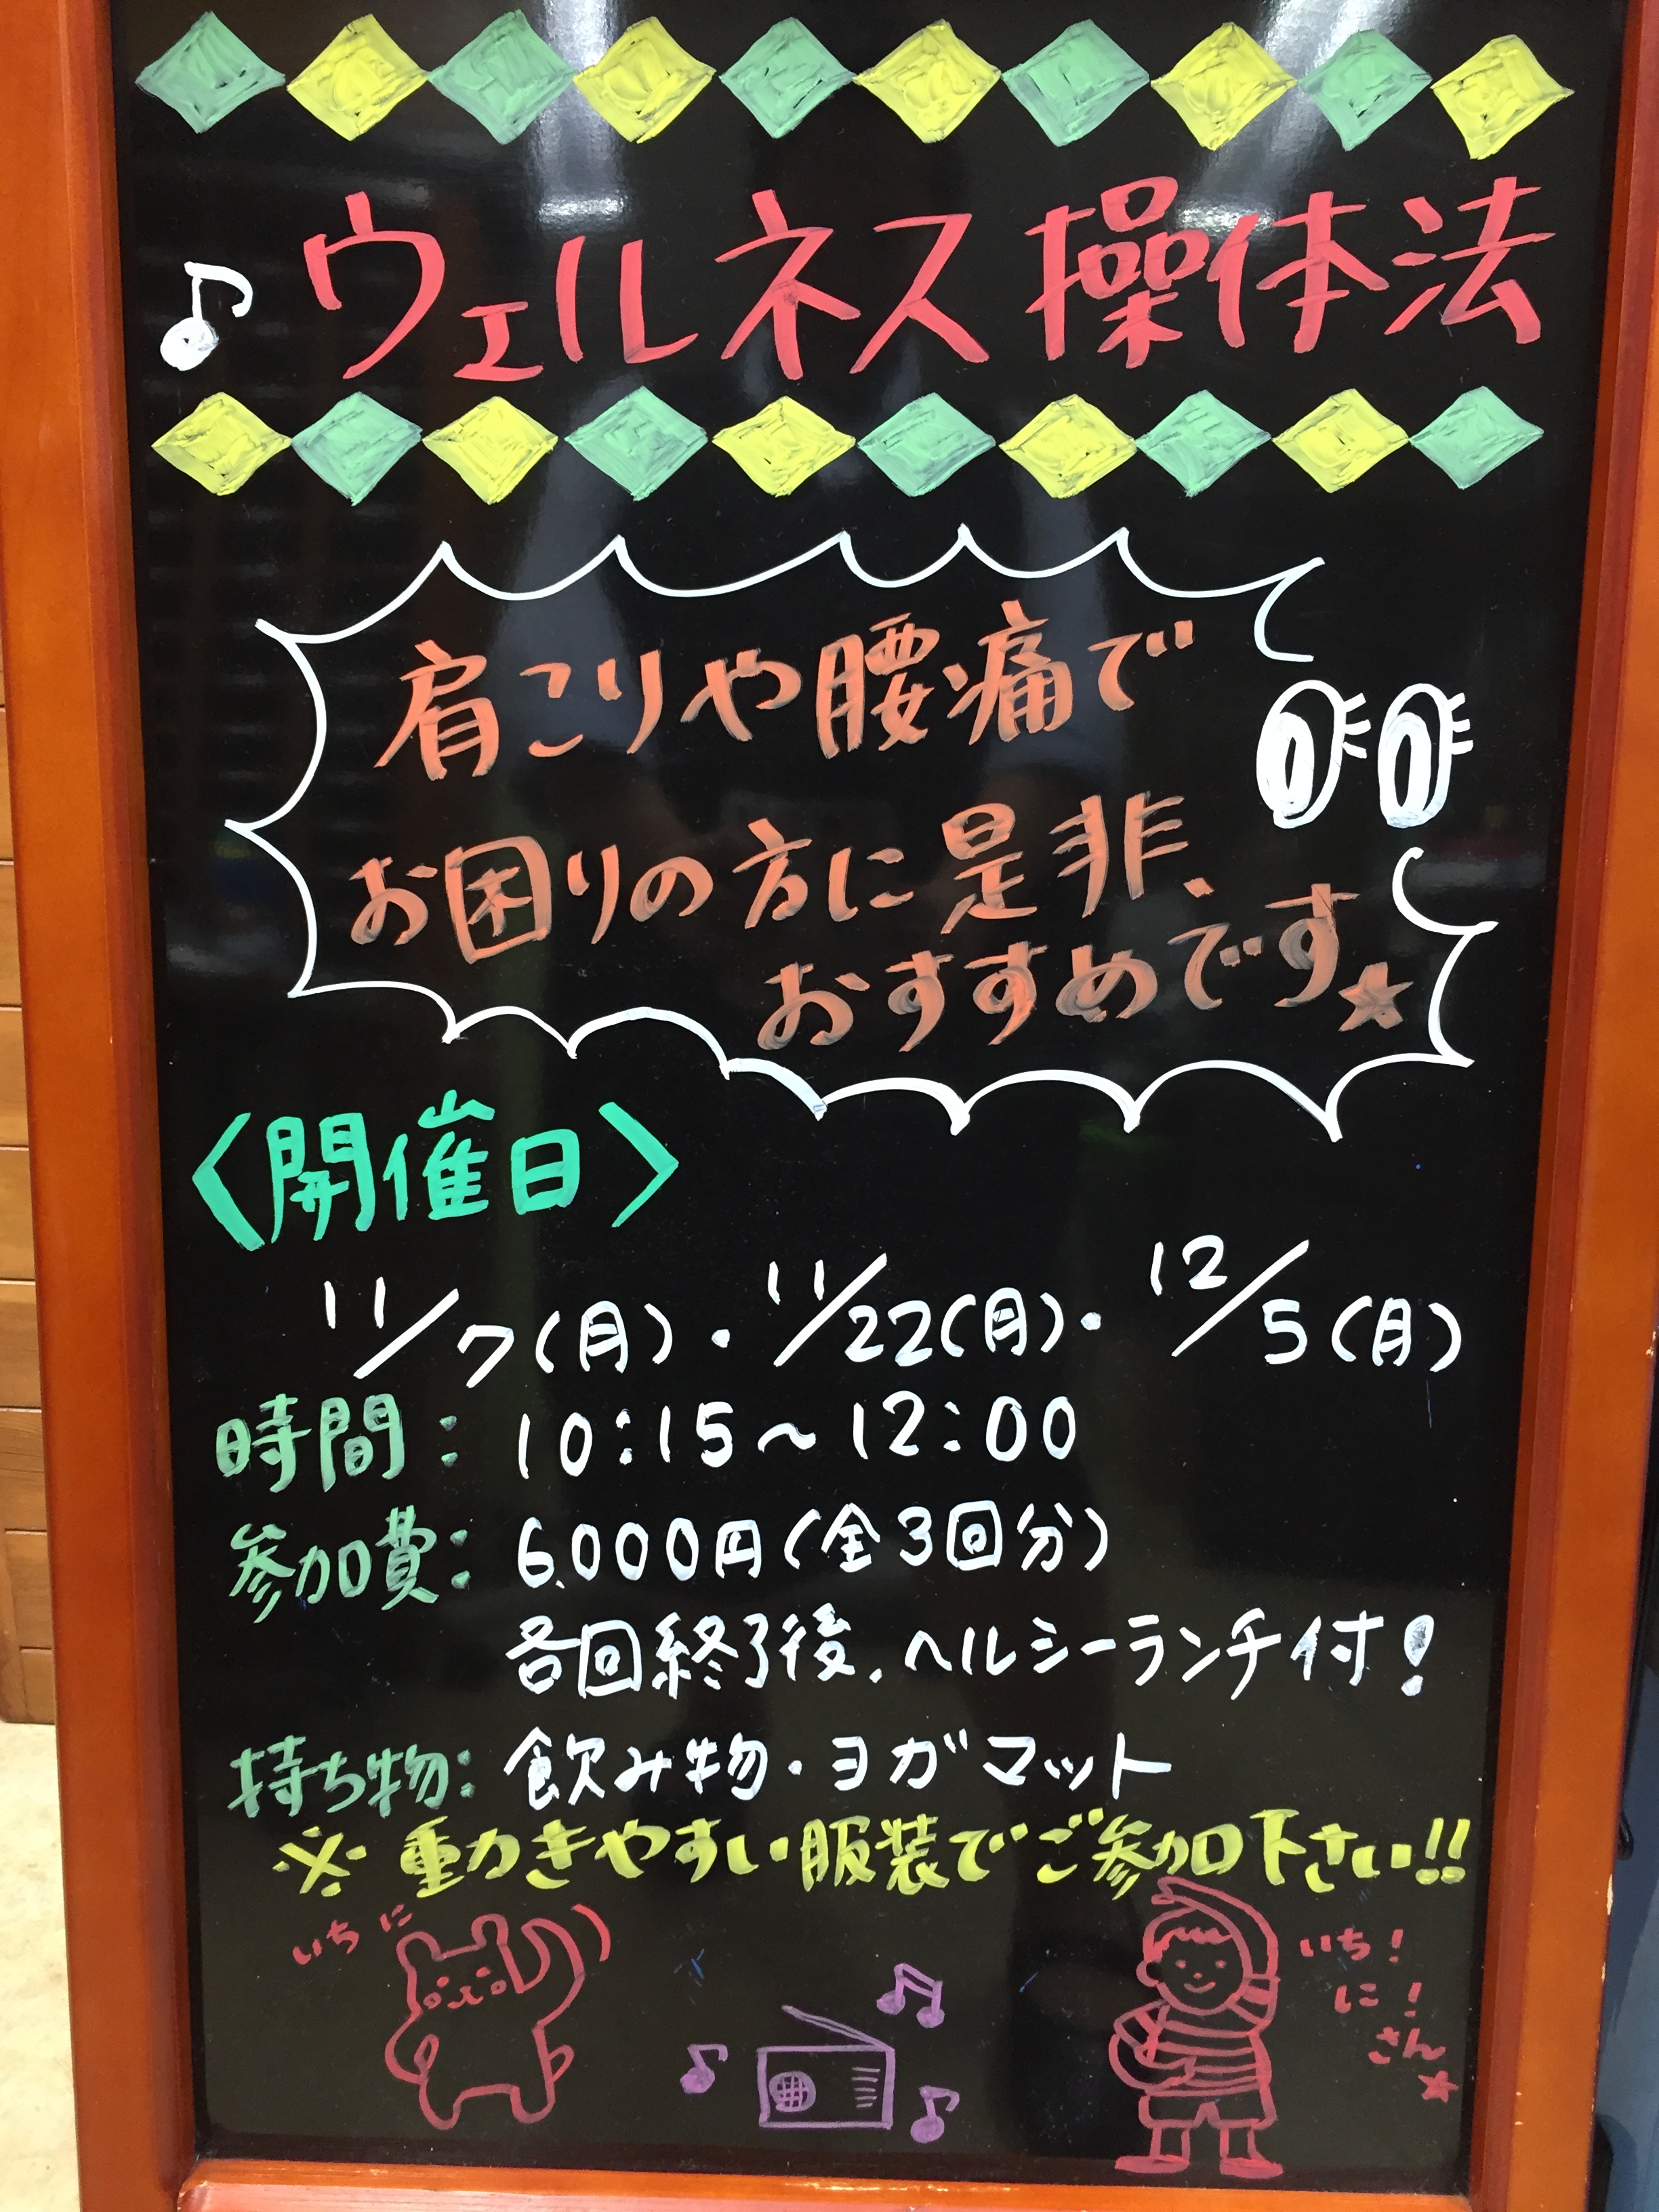 ♪ウェルネス操体法
肩こりや腰痛で
お困りの方に是非、
おすすめです★
〈開催日〉
11/7(月)・11/22(月)・12/5(月)
時間：10:15～12:00
参加費：6,000円(全3回分)
各回終了後、ヘルシーランチ付！
持ち物：飲み物・ヨガマット
※動きやすい服装でご参加下さい!!
いち に
いち！
に！
さん
★